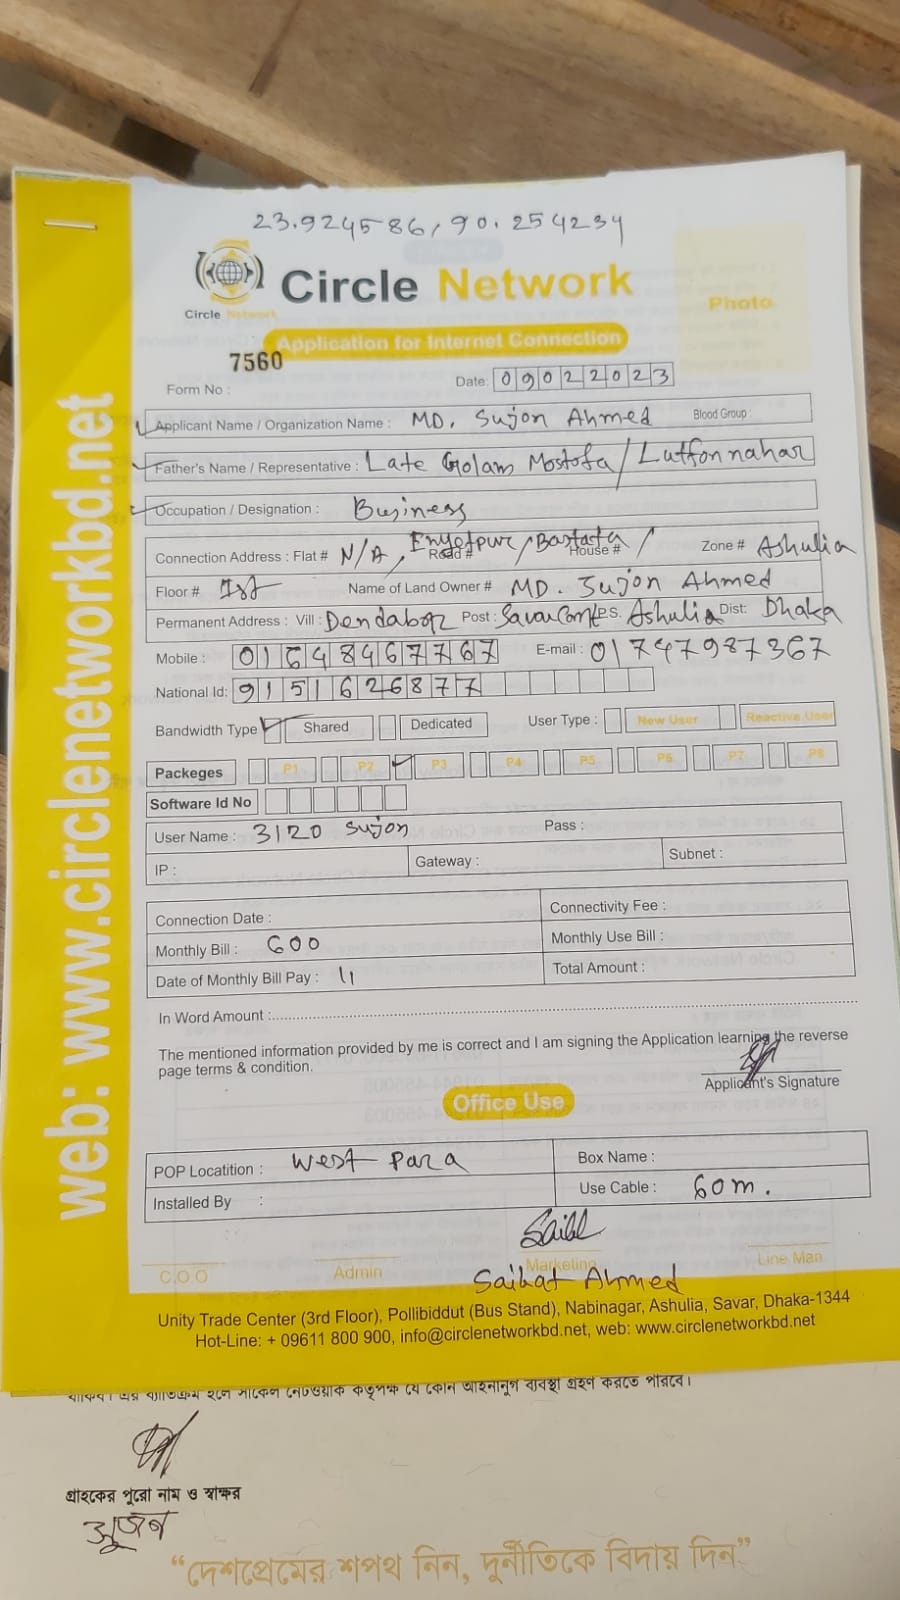 23.924586, 90.254234
Circle Network
Circle Network
Photo
Application for Internet Connection
7560
Form No :
Date: 09022023
Applicant Name / Organization Name : MD. Sujon Ahmed Blood Group :
Father's Name / Representative : Late Golam Mostofa / Lutfonnahar
Occupation / Designation : Business
Connection Address : Flat # N/A, Road # House # / Zone # Ashulia
Floor # 1st Name of Land Owner # MD. Sujon Ahmed
Permanent Address : Vill : Dendabor Post : Savar Cantt P.S. Ashulia Dist: Dhaka
Mobile : 01648467767 E-mail : 01747987367
National Id: 9151626877
Bandwidth Type Shared Dedicated User Type : New User Reactive User
Packeges P1 P2 P3 P4 P5 P6 P7 P8
Software Id No
User Name : 3120 Sujon Pass :
IP : Gateway : Subnet :
Connection Date : Connectivity Fee :
Monthly Bill : 600 Monthly Use Bill :
Date of Monthly Bill Pay : 11 Total Amount :
In Word Amount :
The mentioned information provided by me is correct and I am signing the Application learning the reverse
page terms & condition.
Applicant's Signature
Office Use
POP Locatition : West Para Box Name :
Installed By : Use Cable : 60m.
C.O.O Admin Marketing Line Man
Saikat Ahmed
Unity Trade Center (3rd Floor), Pollibiddut (Bus Stand), Nabinagar, Ashulia, Savar, Dhaka-1344
Hot-Line: + 09611 800 900, info@circlenetworkbd.net, web: www.circlenetworkbd.net
web: www.circlenetworkbd.net
নেটওয়ার্ক কতৃপক্ষ যে কোন আইনানুগ ব্যবস্থা গ্রহণ করতে পারবে।
গ্রাহকের পুরো নাম ও স্বাক্ষর
সুজন
“দেশপ্রেমের শপথ নিন, দুর্নীতিকে বিদায় দিন”